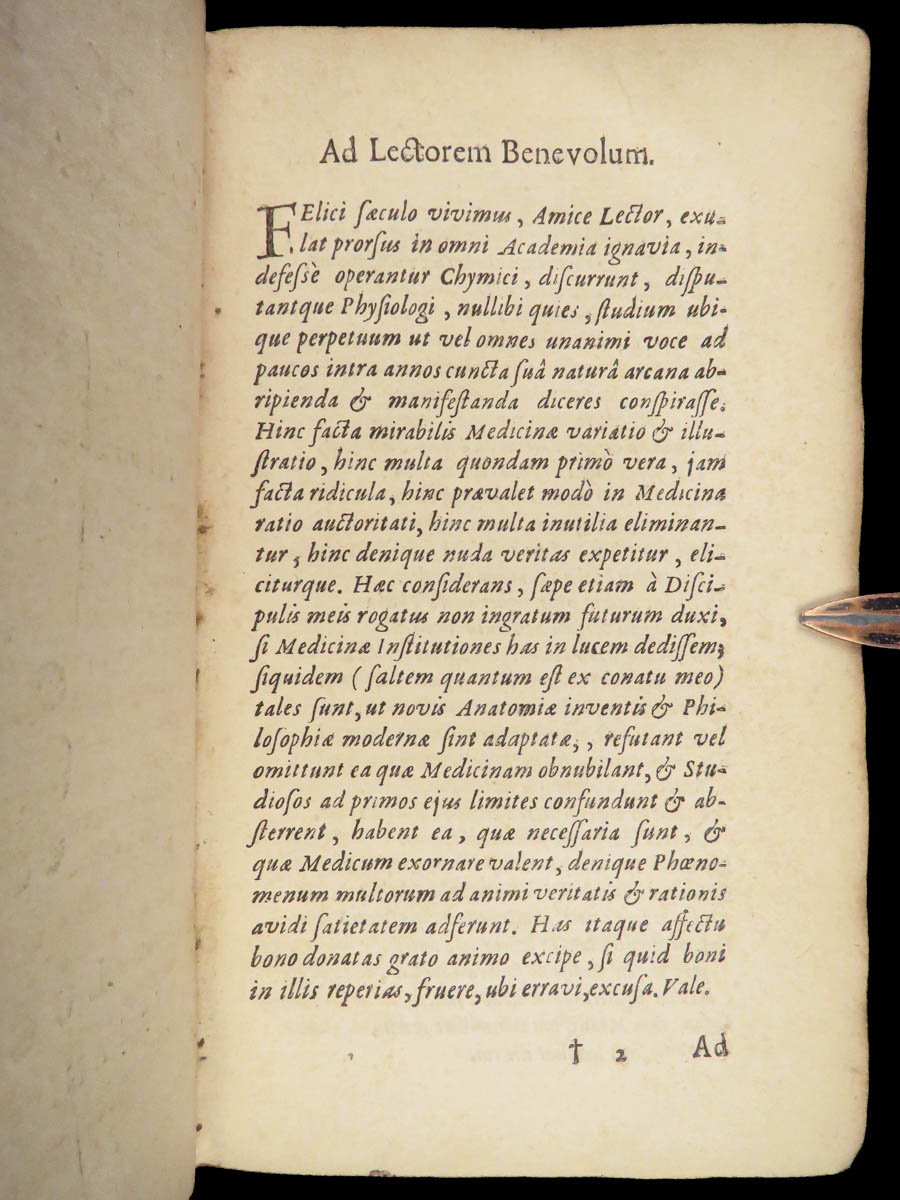 Ad Lectorem Benevolum.
FElici ſæculo vivimus, Amice Lector, exu-
lat prorſus in omni Academia ignavia, in-
defeſsè operantur Chymici, diſcurrunt, diſpu-
tantque Phyſiologi, nullibi quies, ſtudium ubi-
que perpetuum ut vel omnes unanimi voce ad
paucos intra annos cuncta ſuâ naturâ arcana ab-
ripienda & manifeſtanda diceres conſpiraſſe.
Hinc facta mirabilis Medicinæ variatio & illu-
ſtratio, hinc multa quondam primò vera, jam
facta ridicula, hinc prævalet modò in Medicina
ratio auctoritati, hinc multa inutilia eliminan-
tur, hinc denique nuda veritas expetitur, eli-
citurque. Hæc conſiderans, ſæpe etiam à Diſci-
pulis meis rogatus non ingratum futurum duxi,
ſi Medicinæ Inſtitutiones has in lucem dediſſem;
ſiquidem (ſaltem quantum eſt ex conatu meo)
tales ſunt, ut novis Anatomiæ inventis & Phi-
loſophiæ modernæ ſint adaptatæ,, refutant vel
omittunt ea quæ Medicinam obnubilant, & Stu-
dioſos ad primos ejus limites confundunt & ab-
ſterrent, habent ea, quæ neceſſaria ſunt, &
quæ Medicum exornare valent, denique Phœno-
menum multorum ad animi veritatis & rationis
avidi ſatietatem adferunt. Has itaque affectu
bono donatas grato animo excipe, ſi quid boni
in illis reperias, fruere, ubi erravi, excuſa. Vale.
† 2 Ad